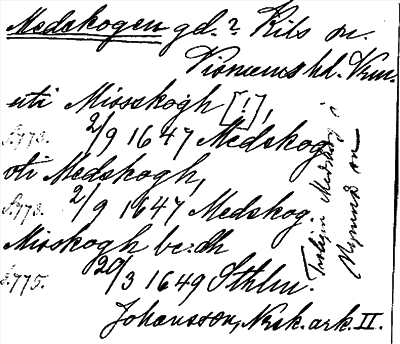 Medskogen gd.? Kils sn.
Visnums hd. Krm.
uti Missskogh [!],
S. 773. 2/9 1647 Medskog
oti Medskogh,
S. 773. 2/9 1647 Medskog.
Misskogh be:dh
S. 775. 20/3 1649 Sthlm.
Johansson, Norsk. ark. II.
Medskog i
Nysund sn